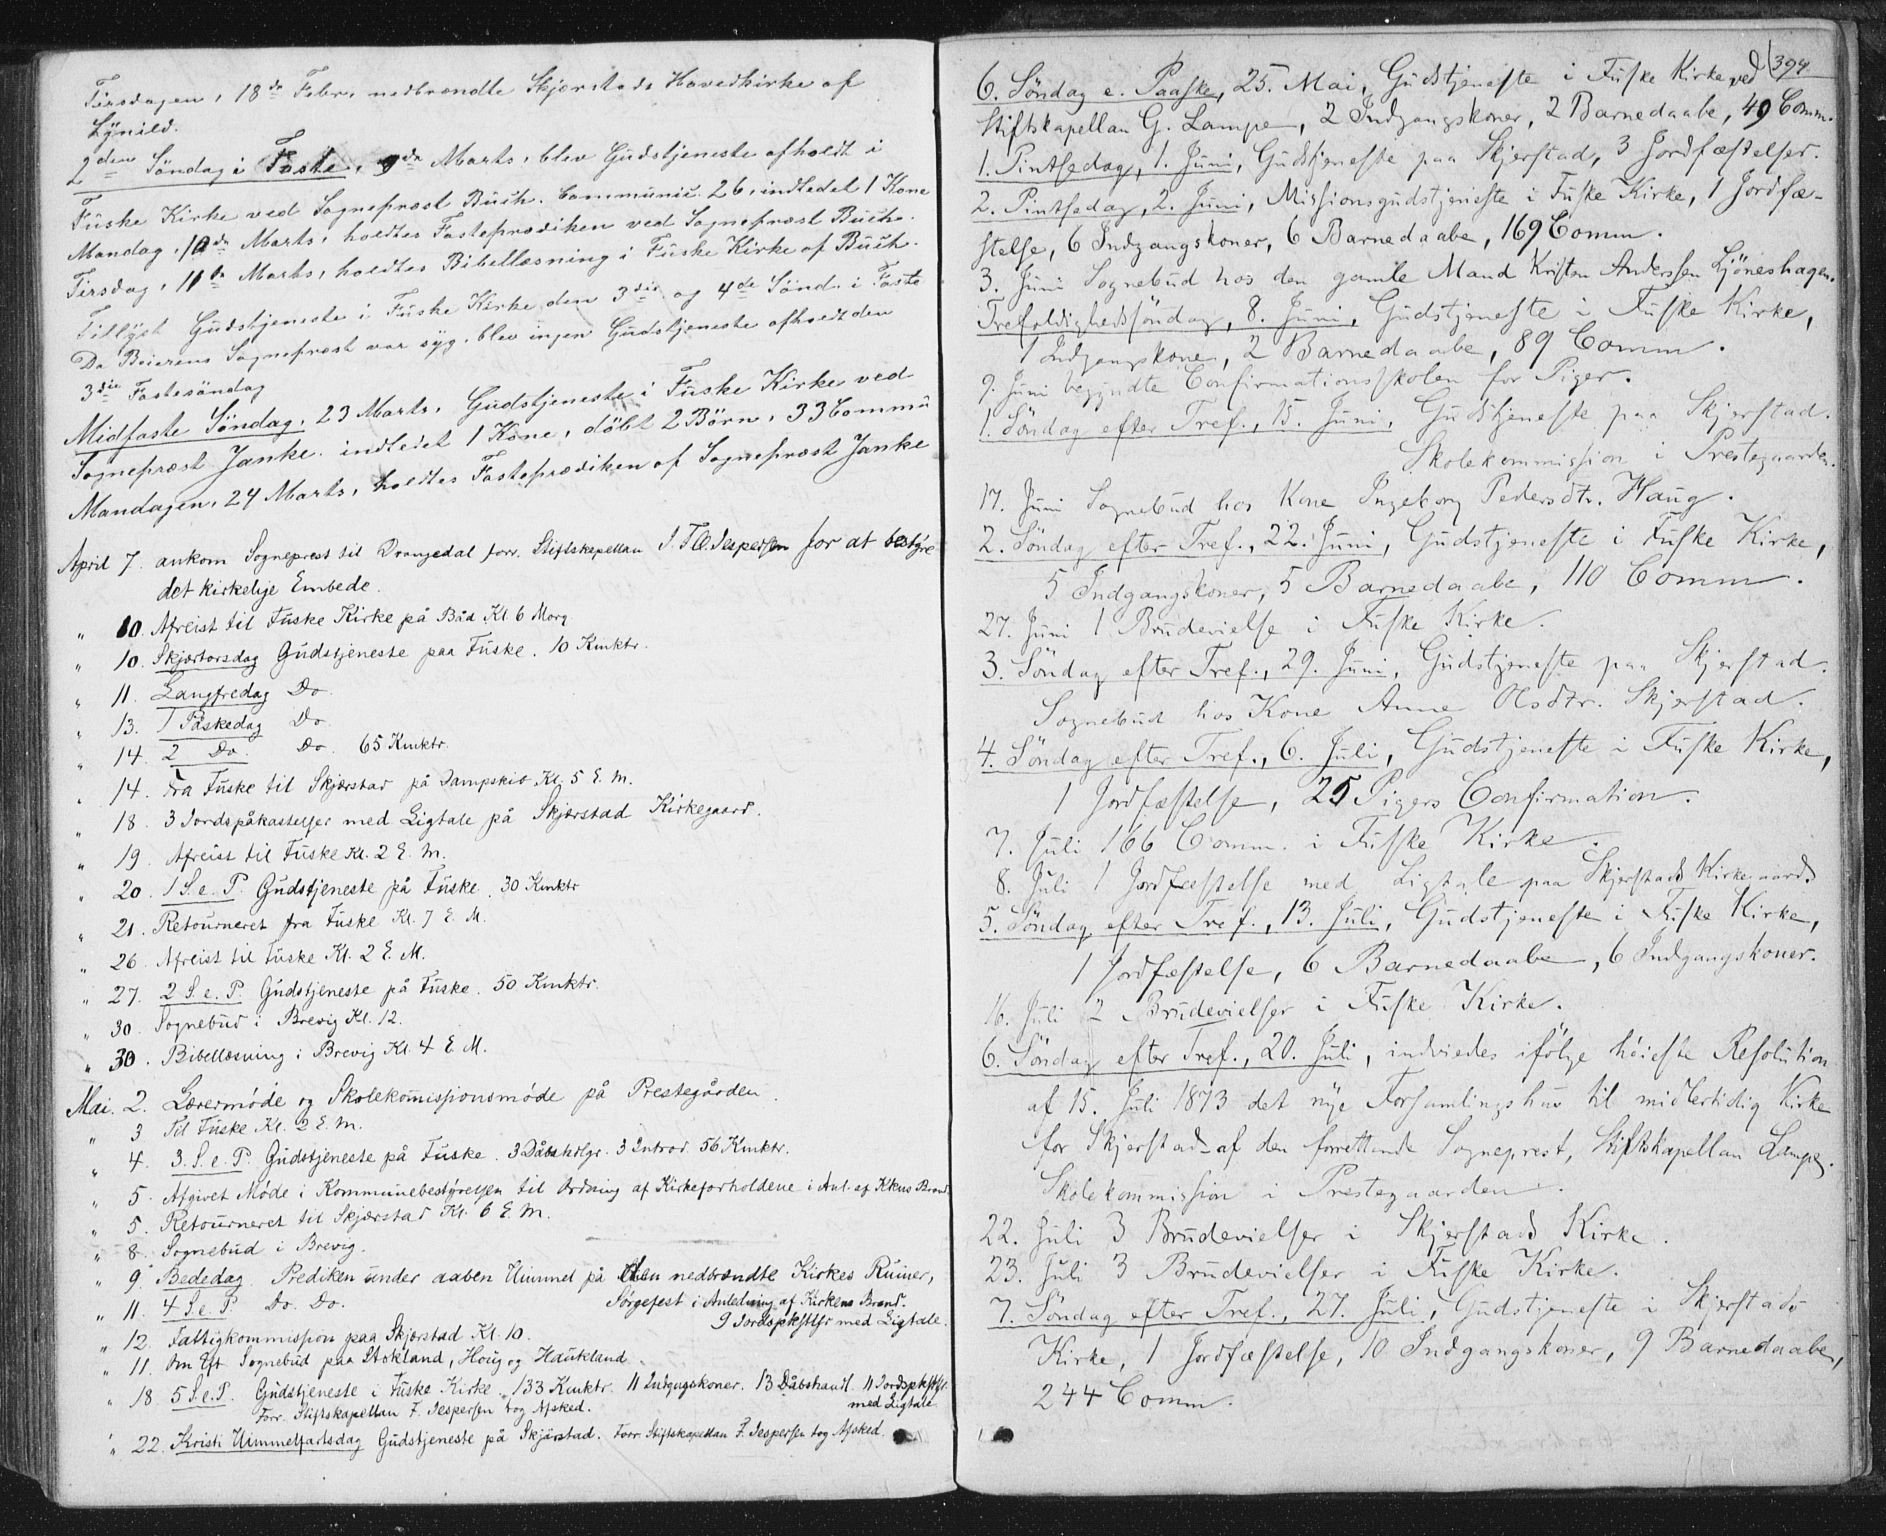 Tirsdagen, 18de Febr. nedbrændte Skjerstads Hovedkirke af
Lynild.
2den Søndag i Faste, 9de Marts, blev Gudstjeneste afholdt i
Fuske Kirke ved Sogneprest Buch. Communic. 26, indledet 1 Kone
Mandag, 10de Marts, holdtes Fasteprædiken ved Sogneprest Buch.
Tirsdag, 11te Marts, holdtes Bibellæsning i Fuske Kirke af Buch.
Tillyst Gudstjeneste i Fuske Kirke den 3die og 4de Sønd. i Faste
Da Beierens Sogneprest var syg, blev ingen Gudstjeneste afholdt den
3die Fastesöndag
Midfaste Söndag, 23 Marts. Gudstjeneste i Fuske Kirke ved
Sogneprest Janke. indledet 1 Kone, döbt 2 Börn, 33 Commu
Mandagen, 24 Marts, holdtes Fasteprædiken af Sogneprest Janke
April 7. ankom Sogneprest til Drangedal forr. Stiftskapellan Jespersen for at bestyre
det kirkelige Embede.
" 10. Afreist til Fuske Kirke på Båd Kl 6 Morg.
" 10. Skjærtorsdag Gudstjeneste paa Fuske. 10 Kmktr.
" 11. Langfredag Do.
" 13. 1 Påskedag Do
" 14. 2 Do. Do. 65 Kmktr.
" 14. Fra Fuske til Skjærstad på Dampskib Kl. 5 E. M.
" 18. 3 Jordspåkastelser med Ligtale på Skjærstad Kirkegaard.
" 19. Afreist til Fuske Kl. 2 E. M.
" 20. 1 S. e. P. Gudstjeneste på Fuske. 30 Kmktr
" 21. Retourneret fra Fuske Kl. 7 E. M.
" 26. Afreist til Fuske Kl. 2 E. M.
" 27. 2 S. e. P. Gudstjeneste på Fuske. 50 Kmktr.
" 30. Sognebud i Brevig Kl. 12.
" 30. Bibellæsning i Brevig Kl. 4 E. M.
Mai. 2. Lærermøde og Skolekommissionsmøde på Prestegården.
" 3 Til Fuske Kl. 2 E. M.
" 4. 3. S. e. P. Gudstjeneste på Fuske. 3 Dåbshdlgr. 3 Introd. 56 Kmktr.
" 5. Afgivet Møde i Kommunebestyrelsen til Ordning af Kirkeforholdene i Anl. af Kkens Brand.
" 5. Retourneret til Skjærstad Kl. 6 E. M.
" 8. Sognebud i Brevig.
" 9. Bededag. Prediken under aaben Himmel på den nedbrændte Kirkes Ruiner,
" 11. 4 S. e. P. Do. Do. Sørgefest i Anledning af Kirkens Brand.
9 Jordspkstlsr med Ligtale.
" 12. Fattigkommission paa Skjærstad Kl. 10.
" 11. Om Eft Sognebud paa Stokland, Houg og Haukland
" 18. 5 S.e.P. Gudstjeneste i Fuske Kirke. 133 Kmktr. 11 Indgngskoner. 13 Dåbshandl. 11 Jordspkstlsr.
Forr. Stiftskapellan F. Jespersen tog Afsked. med Ligtale
" 22. Kristi Himmelfartsdag Gudstjeneste på Skjärstad. Forr. Stiftskapellan F. Jespersen tog Afsked.
394.
6. Söndag e. Paaske, 25. Mai, Gudstjeneste i Fuske Kirke ved
Stiftskapellan G. Lampe, 2 Indgangskoner, 2 Barnedaabe, 49 Comm.
1. Pintsedag, 1. Juni, Gudstjeneste paa Skjerstad, 3 Jordfæstelser.
2. Pintsedag, 2. Juni, Missionsgudstjeneste i Fuske Kirke, 1 Jordfæ-
stelse, 6 Indgangskoner, 6 Barnedaabe, 169 Comm.
3. Juni Sognebud hos den gamle Mand Kristen Anderssen Ljöneshagen.
Trefoldighedssöndag, 8. Juni, Gudstjeneste i Fuske Kirke,
1 Indgangskone, 2 Barnedaabe, 89 Comm.
9. Juni begyndte Confirmationsskolen for Piger.
1. Söndag efter Tref., 15. Juni, Gudstjeneste paa Skjerstad.
Skolekommission i Prestegaarden.
17. Juni Sognebud hos Kone Ingeborg Pedersdtr. Haug.
2. Söndag efter Tref., 22. Juni, Gudstjeneste i Fuske Kirke,
5 Indgangskoner, 5 Barnedaabe, 110 Comm.
27. Juni 1 Brudevielse i Fuske Kirke.
3. Söndag efter Tref., 29. Juni, Gudstjeneste paa Skjerstad.
Sognebud hos Kone Anne Olsdtr. Skjerstad.
4. Söndag efter Tref., 6. Juli, Gudstjeneste i Fuske Kirke,
1 Jordfæstelse, 25 Pigers Confirmation.
7. Juli 166 Comm. i Fuske Kirke.
8. Juli 1 Jordfæstelse med Ligtale paa Skjerstads Kirkegaard.
5. Söndag efter Tref., 13. Juli, Gudstjeneste i Fuske Kirke,
1 Jordfæstelse, 6 Barnedaabe, 6 Indgangskoner.
16. Juli 2 Brudevielser i Fuske Kirke.
6. Söndag efter Tref., 20. Juli, indviedes ifölge höieste Resolution
af 15. Juli 1873 det nye Forsamlingshus til midlertidig Kirke
for Skjerstad af den forrettende Sogneprest, Stiftskapellan Lampe.
Skolekommission i Prestegaarden.
22. Juli 3 Brudevielser i Skjerstads Kirke.
23. Juli 3 Brudevielser i Fuske Kirke.
7. Söndag efter Tref., 27. Juli, Gudstjeneste i Skjerstads
Kirke, 1 Jordfæstelse, 10 Indgangskoner, 9 Barnedaabe,
244 Comm.